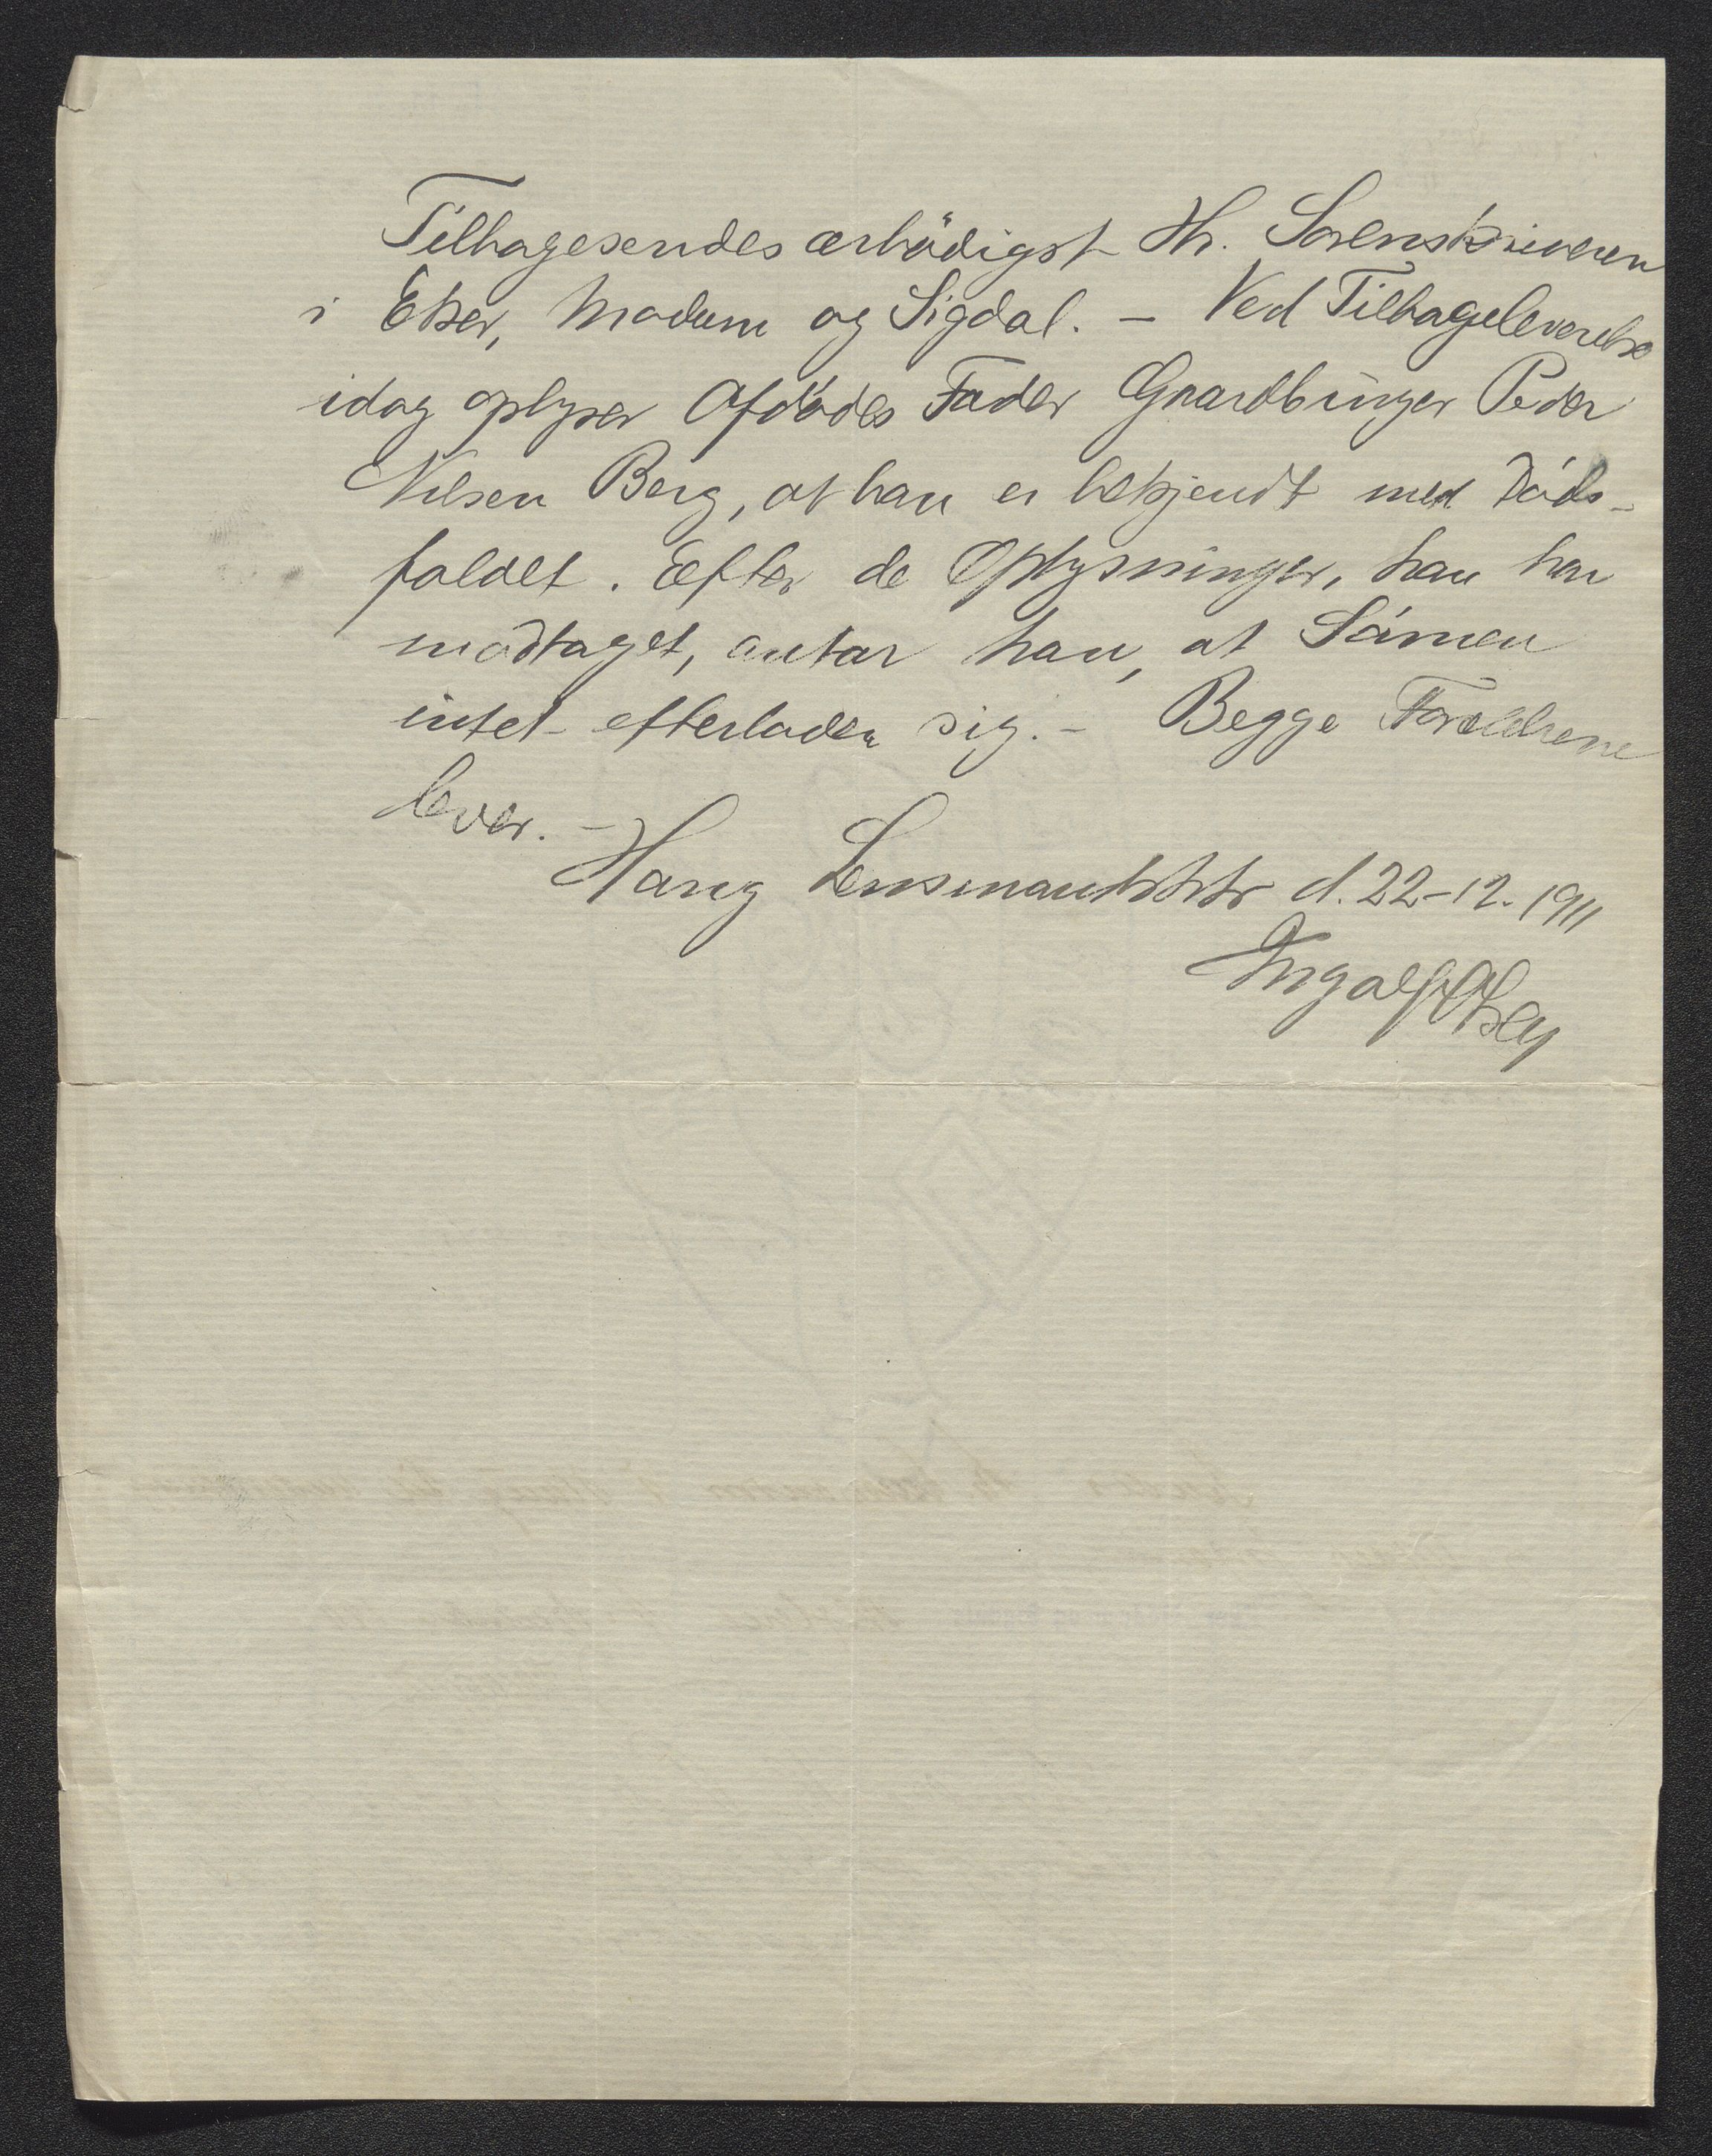 Tilbagesendes ærbödigst Hr. Sorenskriveren
i Eker, Modum og Sigdal. – Ved Tilbageleverelse
idag oplyser Afdödes Fader Gaardbruger Peder
Nilsen Berg, at han er bekjendt med Döds-
faldet. Efter de Oplysninger, han har
modtaget, antar han, at Sönnen
intet efterlader sig. – Begge Forældrene
lever. –
Haug Lensmandsktr d. 22-12-1911